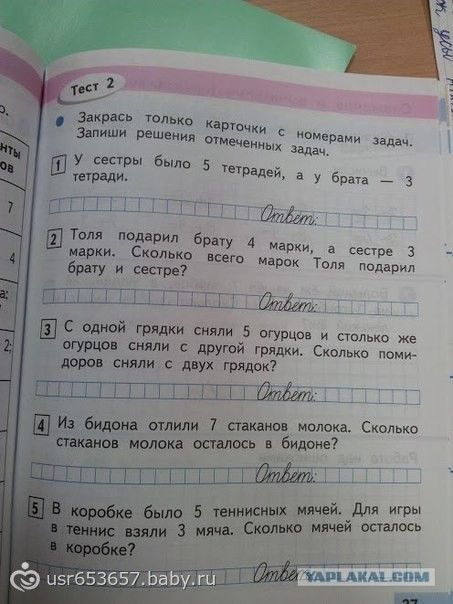 Тест 2
Закрась только карточки с номерами задач.
Запиши решения отмеченных задач.
1 У сестры было 5 тетрадей, а у брата — 3
тетради.
Ответ:
2 Толя подарил брату 4 марки, а сестре 3
марки. Сколько всего марок Толя подарил
брату и сестре?
Ответ:
3 С одной грядки сняли 5 огурцов и столько же
огурцов сняли с другой грядки. Сколько поми-
доров сняли с двух грядок?
Ответ:
4 Из бидона отлили 7 стаканов молока. Сколько
стаканов молока осталось в бидоне?
Ответ:
5 В коробке было 5 теннисных мячей. Для игры
в теннис взяли 3 мяча. Сколько мячей осталось
в коробке?
Ответ:
usr653657.baby.ru
YAPLAKAL.COM
27
7
4
2;